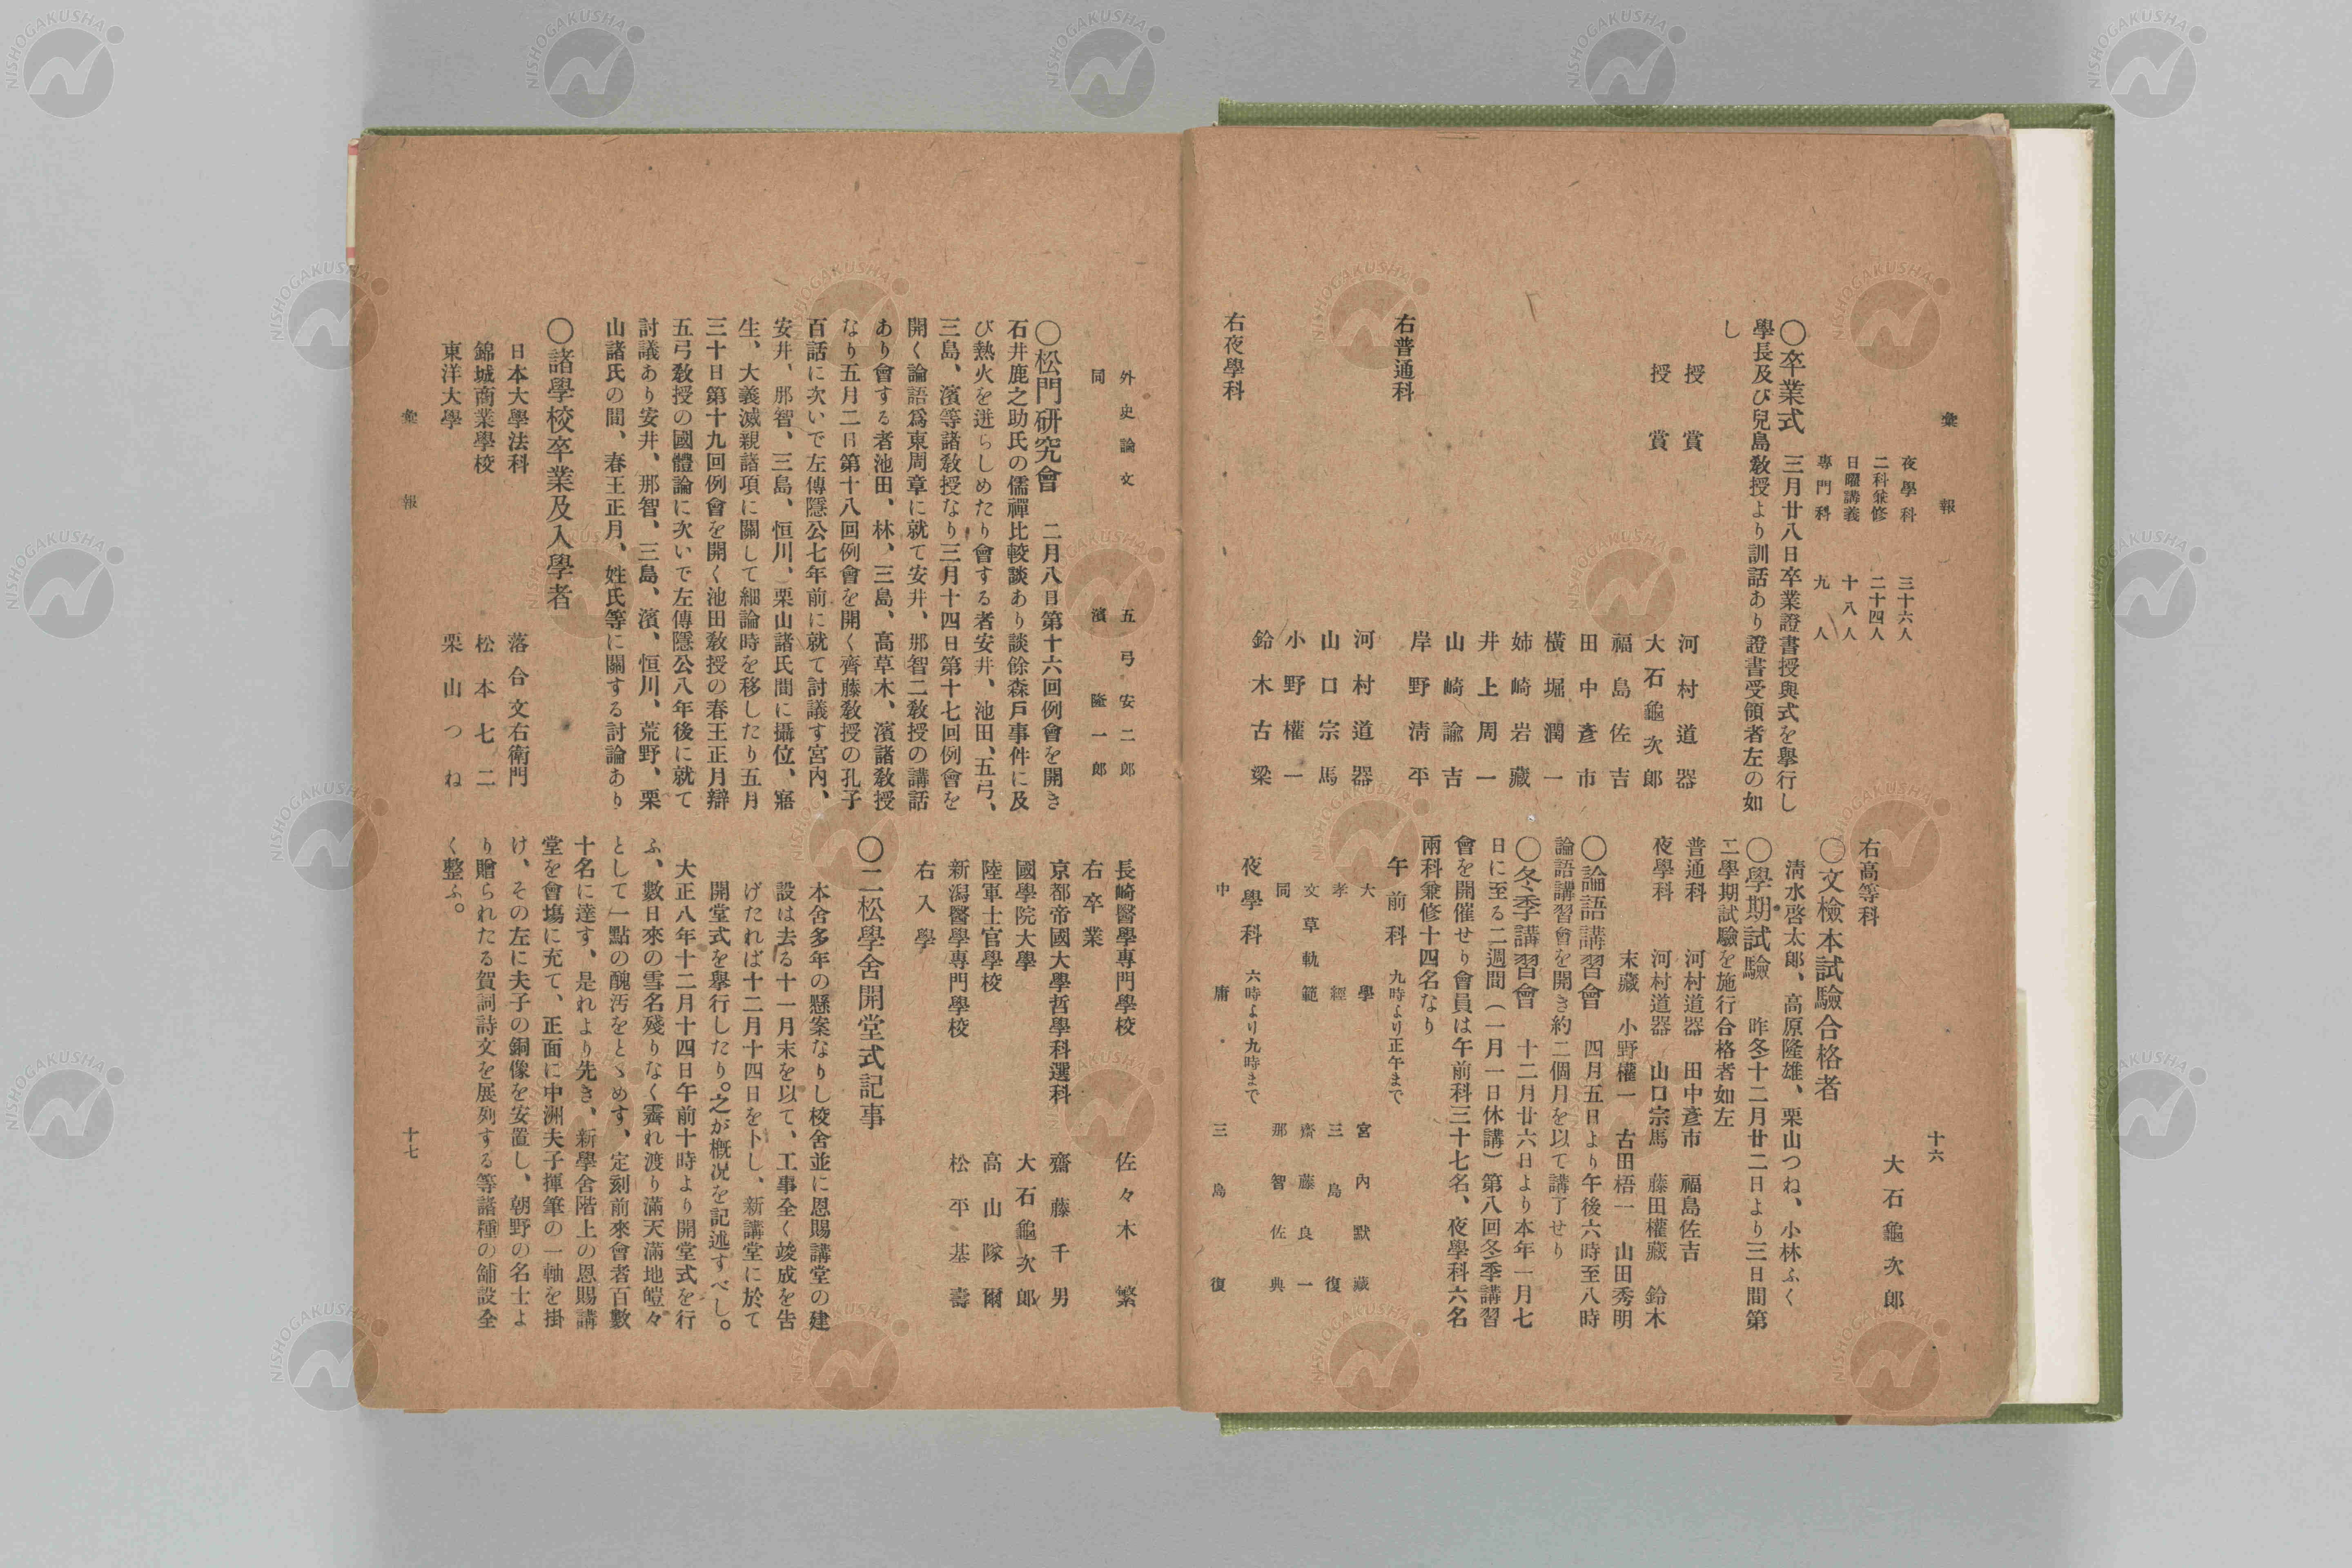 彙報
十六
夜學科　三十六人
二科兼修　二十四人
日曜講義　十八人
專門科　九人
〇卒業式　三月廿八日卒業證書授與式を擧行し
學長及び兒島敎授より訓話あり證書受領者左の如
し
授賞　河村道器
授賞　大石龜次郎
福島佐吉
田中彥市
橫堀潤一
姉崎岩藏
井上周一
山崎諭吉
岸野淸平
右普通科
河村道器
山口宗馬
小野權一
鈴木古梁
右夜學科
大石龜次郎
右高等科
〇文檢本試驗合格者
淸水啓太郞、高原隆雄、栗山つね、小林ふく
〇學期試驗　昨冬十二月廿二日より三日間第
二學期試驗を施行合格者如左
普通科　河村道器　田中彥市　福島佐吉
夜學科　河村道器　山口宗馬　藤田權藏　鈴木
末藏　小野權一　古田梧一　山田秀明
〇論語講習會　四月五日より午後六時至八時
論語講習會を開き約二個月を以て講了せり
〇冬季講習會　十二月廿六日より本年一月七
日に至る二週間（一月一日休講）第八回冬季講習
會を開催せり會員は午前科三十七名、夜學科六名
兩科兼修十四名なり
午前科　九時より正午まで
大學　宮內默藏
孝經　三島復
文草軌範　齋藤良一
同　那智佐典
夜學科　六時より九時まで
中庸　三島復
外史論文　五弓安二郎
同　濱隆一郎
〇松門研究會　二月八日第十六回例會を開き
石井鹿之助氏の儒禪比較談あり談餘森戶事件に及
び熱火を迸らしめたり會する者安井、池田、五弓、
三島、濱等諸敎授なり三月十四日第十七回例會を
開く論語爲東周章に就て安井、那智二敎授の講話
あり會する者池田、林、三島、高草木、濱諸敎授
なり五月二日第十八回例會を開く齊藤敎授の孔子
百話に次いで左傳隱公七年前に就て討議す宮內、
安井、那智、三島、恒川、栗山諸氏間に攝位、寤
生、大義滅親諸項に關して細論時を移したり五月
三十日第十九回例會を開く池田敎授の春王正月辯
五弓敎授の國體論に次いで左傳隱公八年後に就て
討議あり安井、那智、三島、濱、恒川、荒野、栗
山諸氏の間、春王正月、姓氏等に關する討論あり
〇諸學校卒業及入學者
日本大學法科　落合文右衞門
錦城商業學校　松本七二
東洋大學　栗山つね
長崎醫學專門學校　佐々木繁
右卒業
京都帝國大學哲學科選科　齋藤千男
國學院大學　大石龜次郎
陸軍士官學校　高山隊爾
新潟醫學專門學校　松平基壽
右入學
〇二松學舍開堂式記事
本舍多年の懸案なりし校舍並に恩賜講堂の建
設は去る十一月末を以て、工事全く竣成を告
げたれば十二月十四日を卜し、新講堂に於て
開堂式を擧行したり。之が槪況を記述すべし。
大正八年十二月十四日午前十時より開堂式を行
ふ、數日來の雪名殘りなく霽れ渡り滿天滿地皚々
として一點の醜汚をとゞめす、定刻前來會者百數
十名に達す、是れより先き、新學舍階上の恩賜講
堂を會塲に充て、正面に中洲夫子揮筆の一軸を掛
け、その左に夫子の銅像を安置し、朝野の名士よ
り贈られたる賀詞詩文を展列する等諸種の舖設全
く整ふ。
彙報
十七
NISHOGAKUSHA